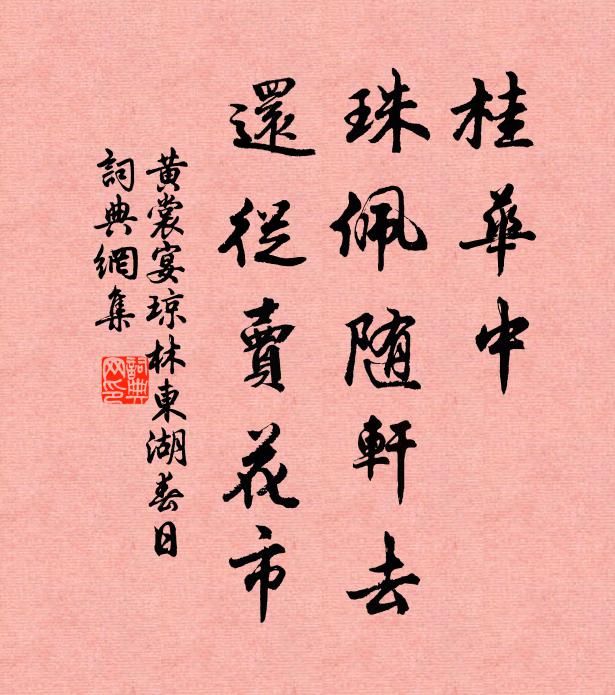 桂華中
珠佩随軒去
還從賣花市
黄裳宴琼林東湖春日
詞典網集
詞典網印